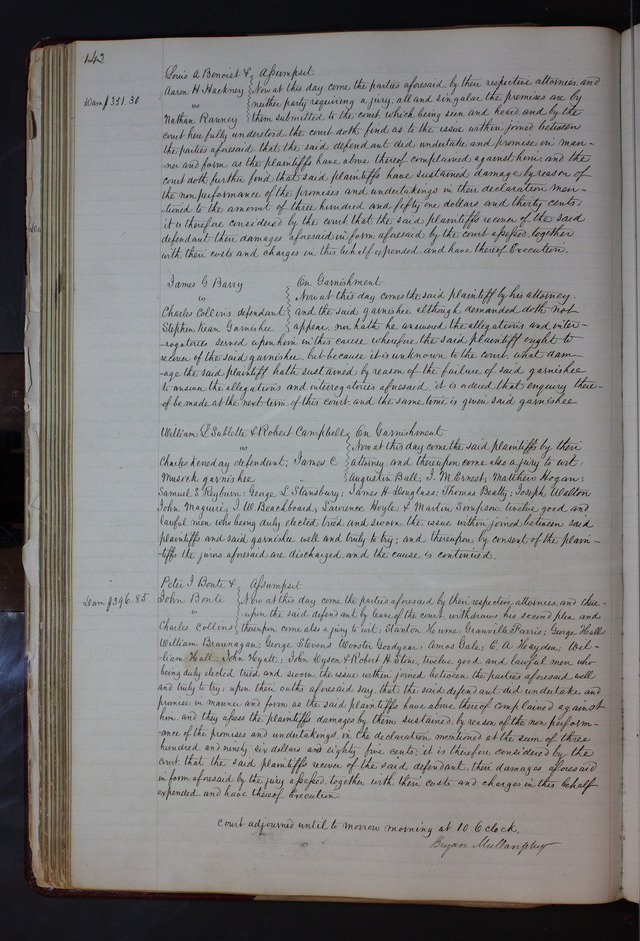 142
Louis A Benoist & Assumpsit
Aaron H Hackney Now at this day come the parties aforesaid by their respective attornies, and
Dam $351.30 vs neither party requiring a jury, all and singular the premises are by
Nathan Ranney them submitted to the court which being seen and heard and by the
court here fully understood the court doth find as to the issue within joined between
the parties aforesaid that the said defendant did undertake and promise in man-
ner and form as the plaintiffs have above thereof complained against him; and the
court doth further find that said plaintiffs have sustained damage by reason of
the nonperformance of the promises and undertakings in their declaration men-
-tioned to the amount of three hundred and fifty one dollars and thirty cents;
it is therefore considered by the court that the said plaintiffs recover of the said
defendant their damages aforesaid in form aforesaid by the court assessed, together
with their costs and charges in this behalf expended and have thereof Execution.
James G Barry On Garnishment
vs Now at this day comes the said plaintiff by his attorney,
Charles Collins defendant and the said garnishee although demanded doth not
Stephen Kean Garnishee appear, nor hath he answered the allegations and inter-
-rogatories served upon him in this cause wherefore the said plaintiff ought to
recover of the said garnishee, but because it is unknown to the court, what dam-
-age the said plaintiff hath sustained by reason of the failure of said garnishee
to answer the allegations and interrogatories aforesaid, it is ordered that enquiry there-
of be made at the next term of this court and the same time is given said garnishee
William L Sublette & Robert Campbell On Garnishment
vs Now at this day come the said plaintiffs by their
Charles Keneday defendant; James C attorney, and thereupon come also a jury to wit:
Musick garnishee Augustin Ball; J. M. Ernest; Matthew Hogan;
Samuel S Reyburn; George L Stansbury; James H Douglass; Thomas Beatty; Joseph Walton
John Maguire; J. W. Beachboard; Lawrence Hoyle & Martin Simpson twelve good and
lawful men who being duly elected tried and sworn the issue within joined between said
plaintiffs and said garnishee well and truly to try; and thereupon by consent of the plain-
-tiffs the jurors aforesaid are discharged and the cause is continued.
Peter J Bonte & Assumpsit
Dam $396.85 John Bonte Now at this day come the parties aforesaid by their respective attornies, and there-
vs upon the said defendant by leave of the court withdraws his second plea and
Charles Collins thereupon come also a jury to wit: Stanton Howne; Granville Farris; George Halls
William Brawnagan; George Stevens Wooster Goodyear; Amos Gate; E. A Hayden; Wil-
liam Hall; John Hyatt; John Dyson & Robert H Stone, twelve good and lawful men who
being duly elected tried and sworn the issue within joined between the parties aforesaid well
and truly to try, upon their oaths aforesaid say that the said defendant did undertake and
promise in manner and form as the said plaintiffs have above thereof complained against
him, and they assess the plaintiffs damages by them sustained by reason of the non perform-
-ance of the promises and undertakings in the declaration mentioned at the sum of three
hundred and ninety six dollars and eighty five cents; it is therefore considered by the
court that the said plaintiffs recover of the said defendant, their damages aforesaid
in form aforesaid by the jury assessed, together with their costs and charges in this behalf
expended, and have thereof Execution
Court adjourned until to morrow morning at 10 O'clock.
Bryan Mullanphy